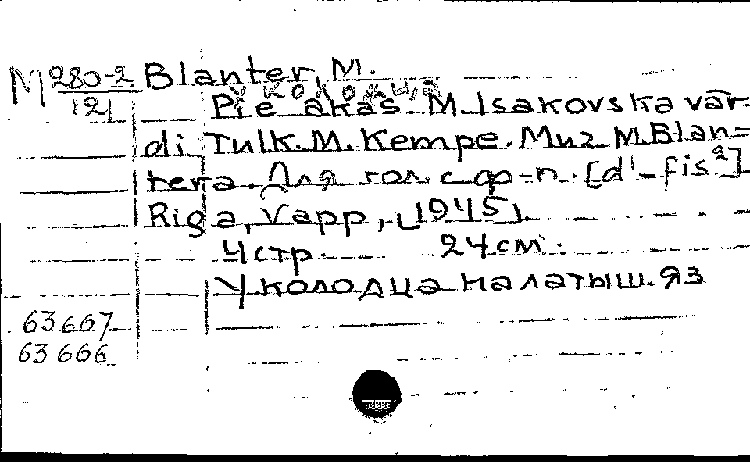 М 280-2 Blanter, M.
121 У колодца
Pie akas M. Isakovska vār-
di Tulk. M. Kempe. Muz M. Blan=
tera. Для гол. с ф-п. [d¹-fis²]
Riga, Vapp, [1945].
4 стр. 24 см.
У колодца на латыш. яз
63667
63666